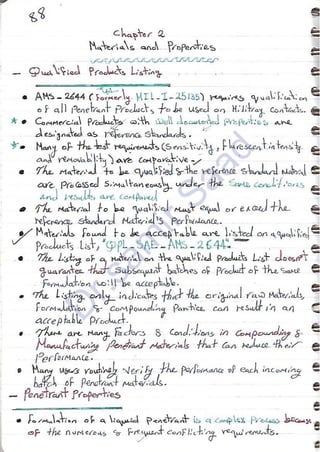 88
Chapter 2
Materials and Properties
- Qualified Products Listing
• AMS-2644 (Formerly MIL-I-25135) requires qualification
of all Penetrant Products, to be used on Military Contacts.
* • Commercial Products with well documented properties are
designated as reference Standards.
* • Many of the test requirements (Sensitivity, Fluorescent intensity
and removability) are comparative
• The material to be qualified & the reference standard material
are processed simultaneously under the same conditions
and results are compared
• The Material to be qualified Must equal or exceed the
reference Standard Material's Performance.
• Materials found to be acceptable are listed on a qualified
Products List, "QPL-SAE-AMS-2644."
• The Listing of a material on the qualified Products List doesn't
guarantee that subsequent batches of Product of the same
Formulation will be acceptable.
• The Listing only indicates that the original raw Materials,
Formulation & Compounding Pantice can result in an
acceptable Product.
• There are Many Factors & Conditions in Compounding &
Manufacturing Penetrant Materials that can reduce their
Performance.
• Many users routinely verify the performance of each incoming
batch of Penetrant materials.
- Penetrant Properties
• Formulation of a liquid Penetrant is a complex Process because
of the numerous & Frequent Conflicting requirements.